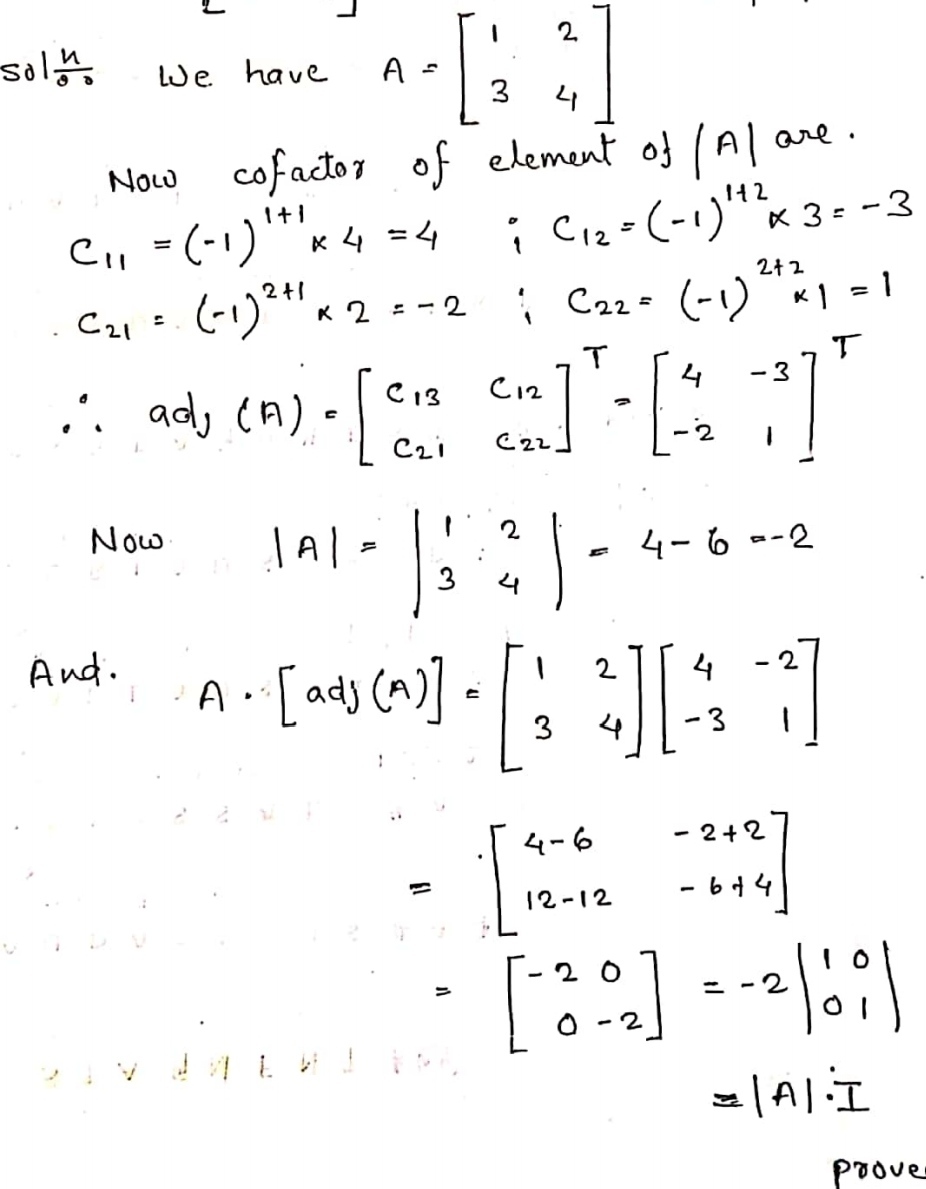 solⁿ We have A = [ 1 2
3 4 ]
Now cofactor of element of |A| are.
C₁₁ = (-1)¹⁺¹ × 4 = 4 ; C₁₂ = (-1)¹⁺² × 3 = -3
C₂₁ = (-1)²⁺¹ × 2 = -2 ; C₂₂ = (-1)²⁺² × 1 = 1
∴ adj (A) = [ C₁₃ C₁₂ ]ᵀ = [ 4 -3 ]ᵀ
C₂₁ C₂₂ -2 1
Now |A| = | 1 2 | = 4-6 = -2
3 4
And. A · [adj (A)] = [ 1 2 ] [ 4 -2 ]
3 4 -3 1
= [ 4-6 -2+2 ]
12-12 -6+4
= [ -2 0 ] = -2 | 1 0 |
0 -2 0 1
= |A|·I
prove